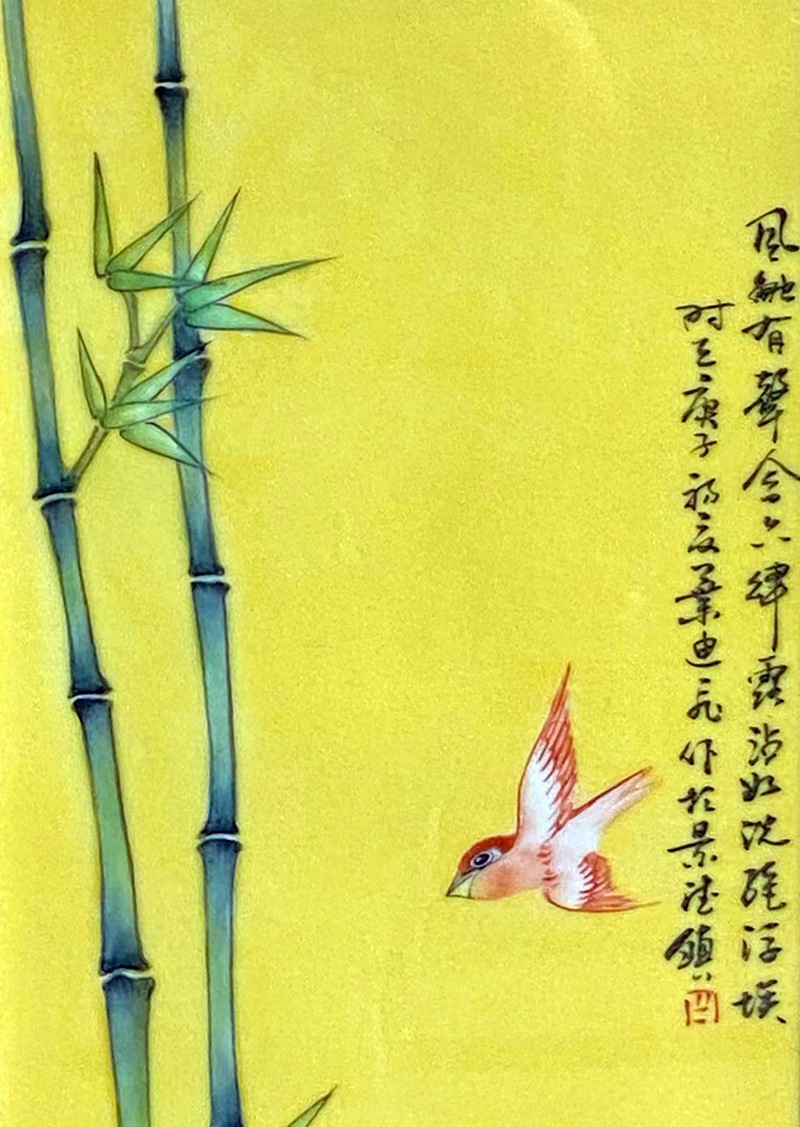 風触有聲含六律露沾如洗絕浮埃
时在庚子初夏葉迪飛作於景德鎮